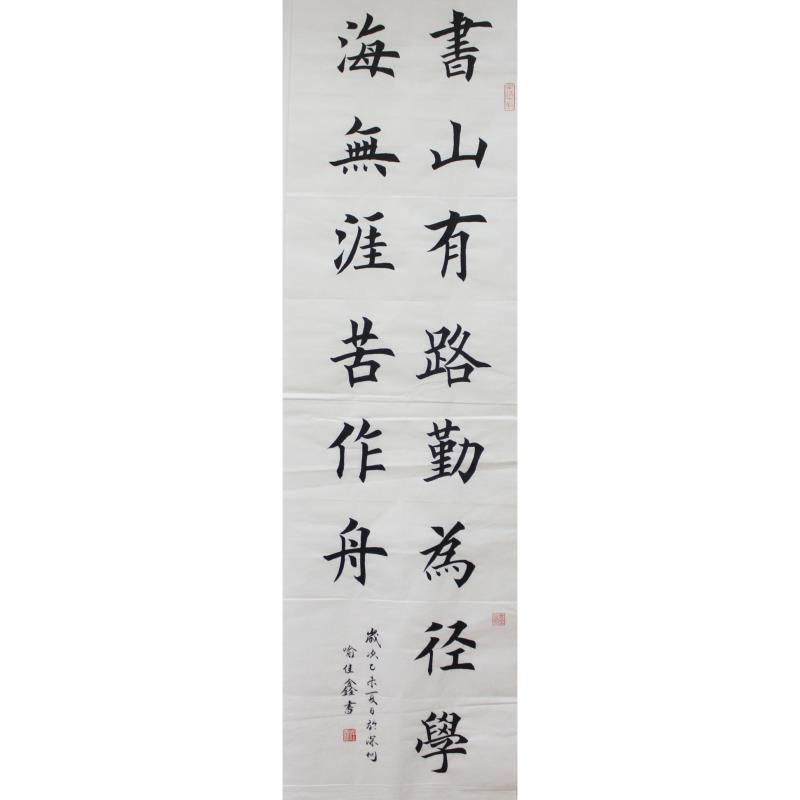 書山有路勤為径學
海無涯苦作舟
歲次乙未夏日於深圳
喻佳鑫書